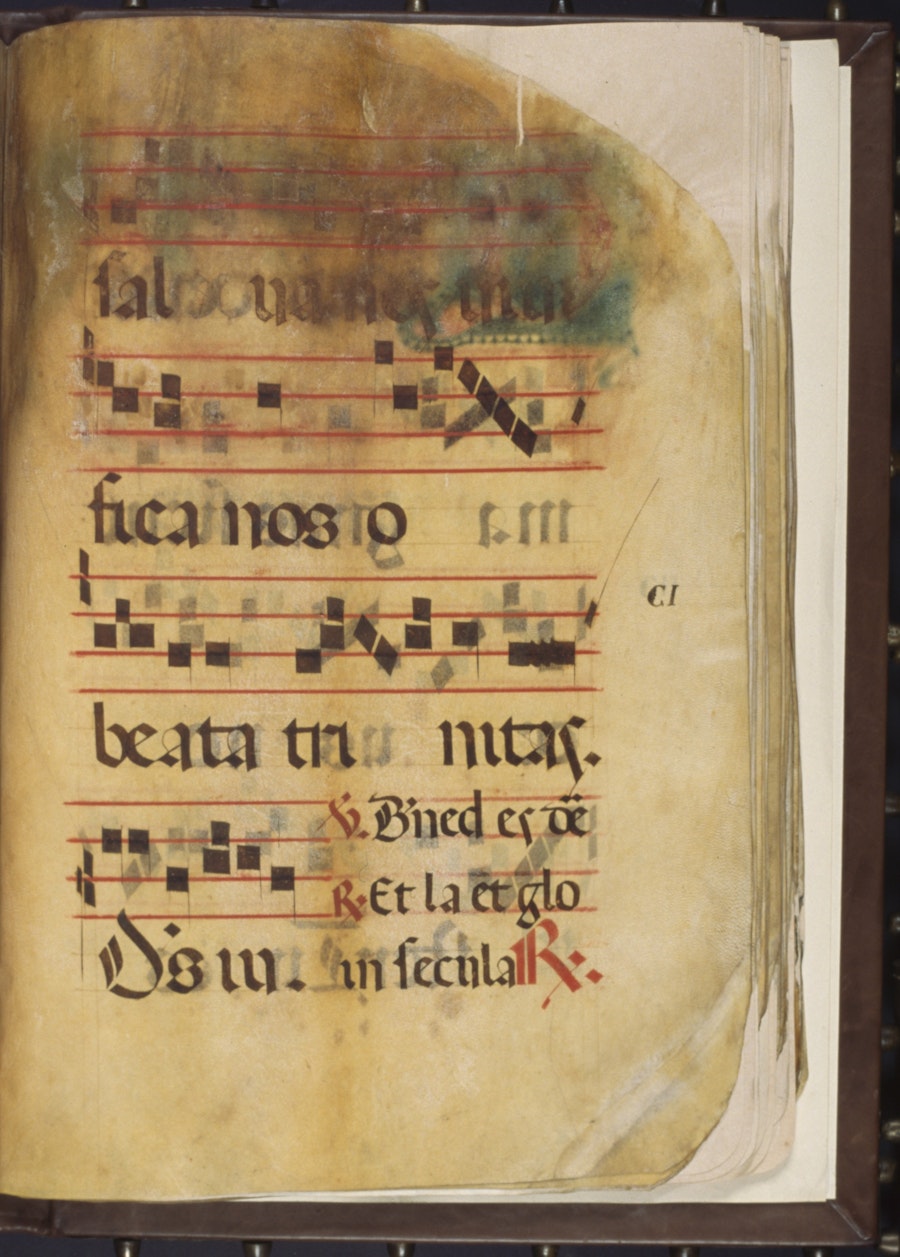 sal ua nos iusti
fica nos o
CI
beata tri nitas.
V. B'ned es dē
R. Et la et glo
Ps m. in secula R.